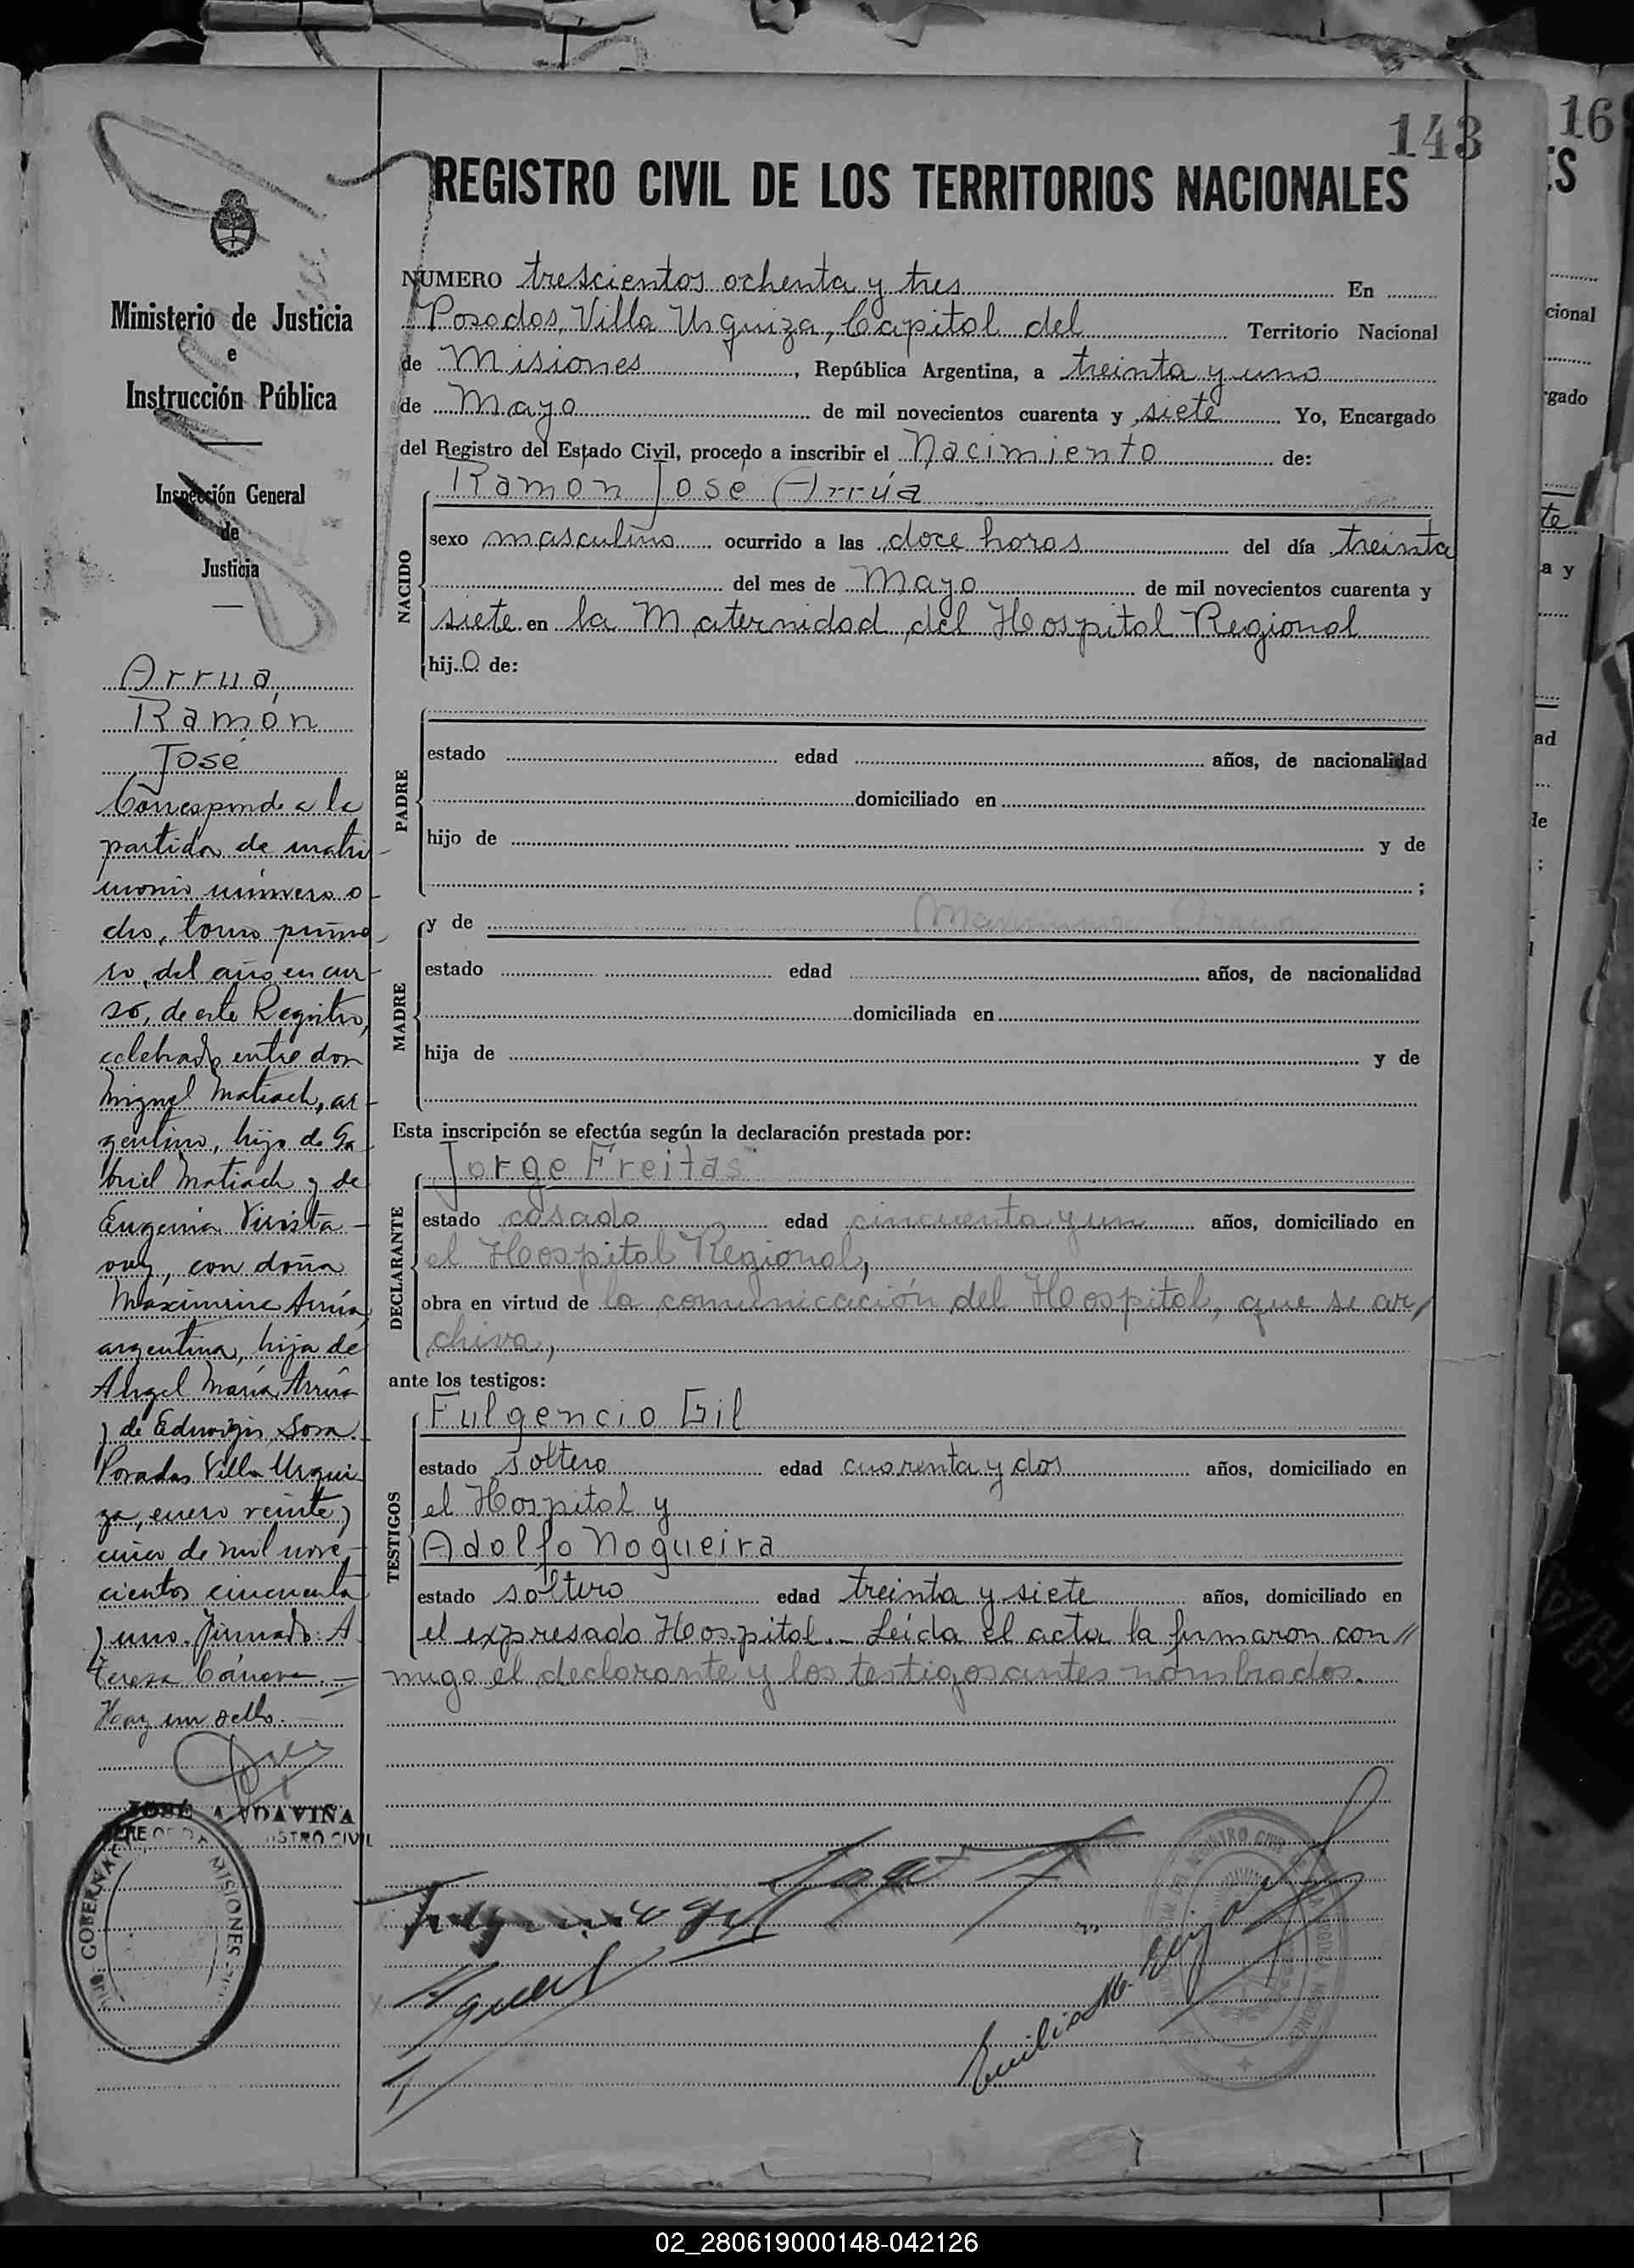 143
16
REGISTRO CIVIL DE LOS TERRITORIOS NACIONALES
ES
Ministerio de Justicia
e
Instrucción Pública
Inspección General
de
Justicia
Arrua,
Ramón
José
Corresponde a la
partida de matri-
monio número o-
cho, tomo prime-
ro, del año en cur-
so, de este Registro,
celebrado entre don
Miguel Matiach, ar-
gentino, hijo de Ga
briel Matiach y de
Eugenia
con doña
Maximina Arrúa,
argentina, hija de
Angel María Arrúa
y de Eduvigis Sosa.
Posadas Villa Urqui
za, enero veinte y
cinco de mil nove-
cientos cincuenta
y uno. Firmado: A.
Teresa
Hay un sello.
JOSÉ A. VDAVIÑA
JEFE REGISTRO CIVIL
GOBERNAC MISIONES
NUMERO trescientos ochenta y tres En
Posadas, Villa Urquiza, Capital del Territorio Nacional
de Misiones, República Argentina, a treinta y uno
de Mayo de mil novecientos cuarenta y siete Yo, Encargado
del Registro del Estado Civil, procedo a inscribir el Nacimiento de:
NACIDO
Ramon Jose Arrúa
sexo masculino ocurrido a las doce horas del día treinta
del mes de Mayo de mil novecientos cuarenta y
siete en la Maternidad del Hospital Regional
hijo de:
PADRE
estado edad años, de nacionalidad
domiciliado en
hijo de y de
;
MADRE
y de Maximina Arrua
estado edad años, de nacionalidad
domiciliada en
hija de y de
Esta inscripción se efectúa según la declaración prestada por:
DECLARANTE
Jorge Freitas
estado casado edad cincuenta y un años, domiciliado en
el Hospital Regional,
obra en virtud de la comunicación del Hospital, que se ar/
chiva,
ante los testigos:
TESTIGOS
Fulgencio Gil
estado soltero edad cuarenta y dos años, domiciliado en
el Hospital y
Adolfo Nogueira
estado soltero edad treinta y siete años, domiciliado en
el expresado Hospital.- Leída el acta la firmaron con//
migo el declarante y los testigos antes nombrados.
02_280619000148-042126